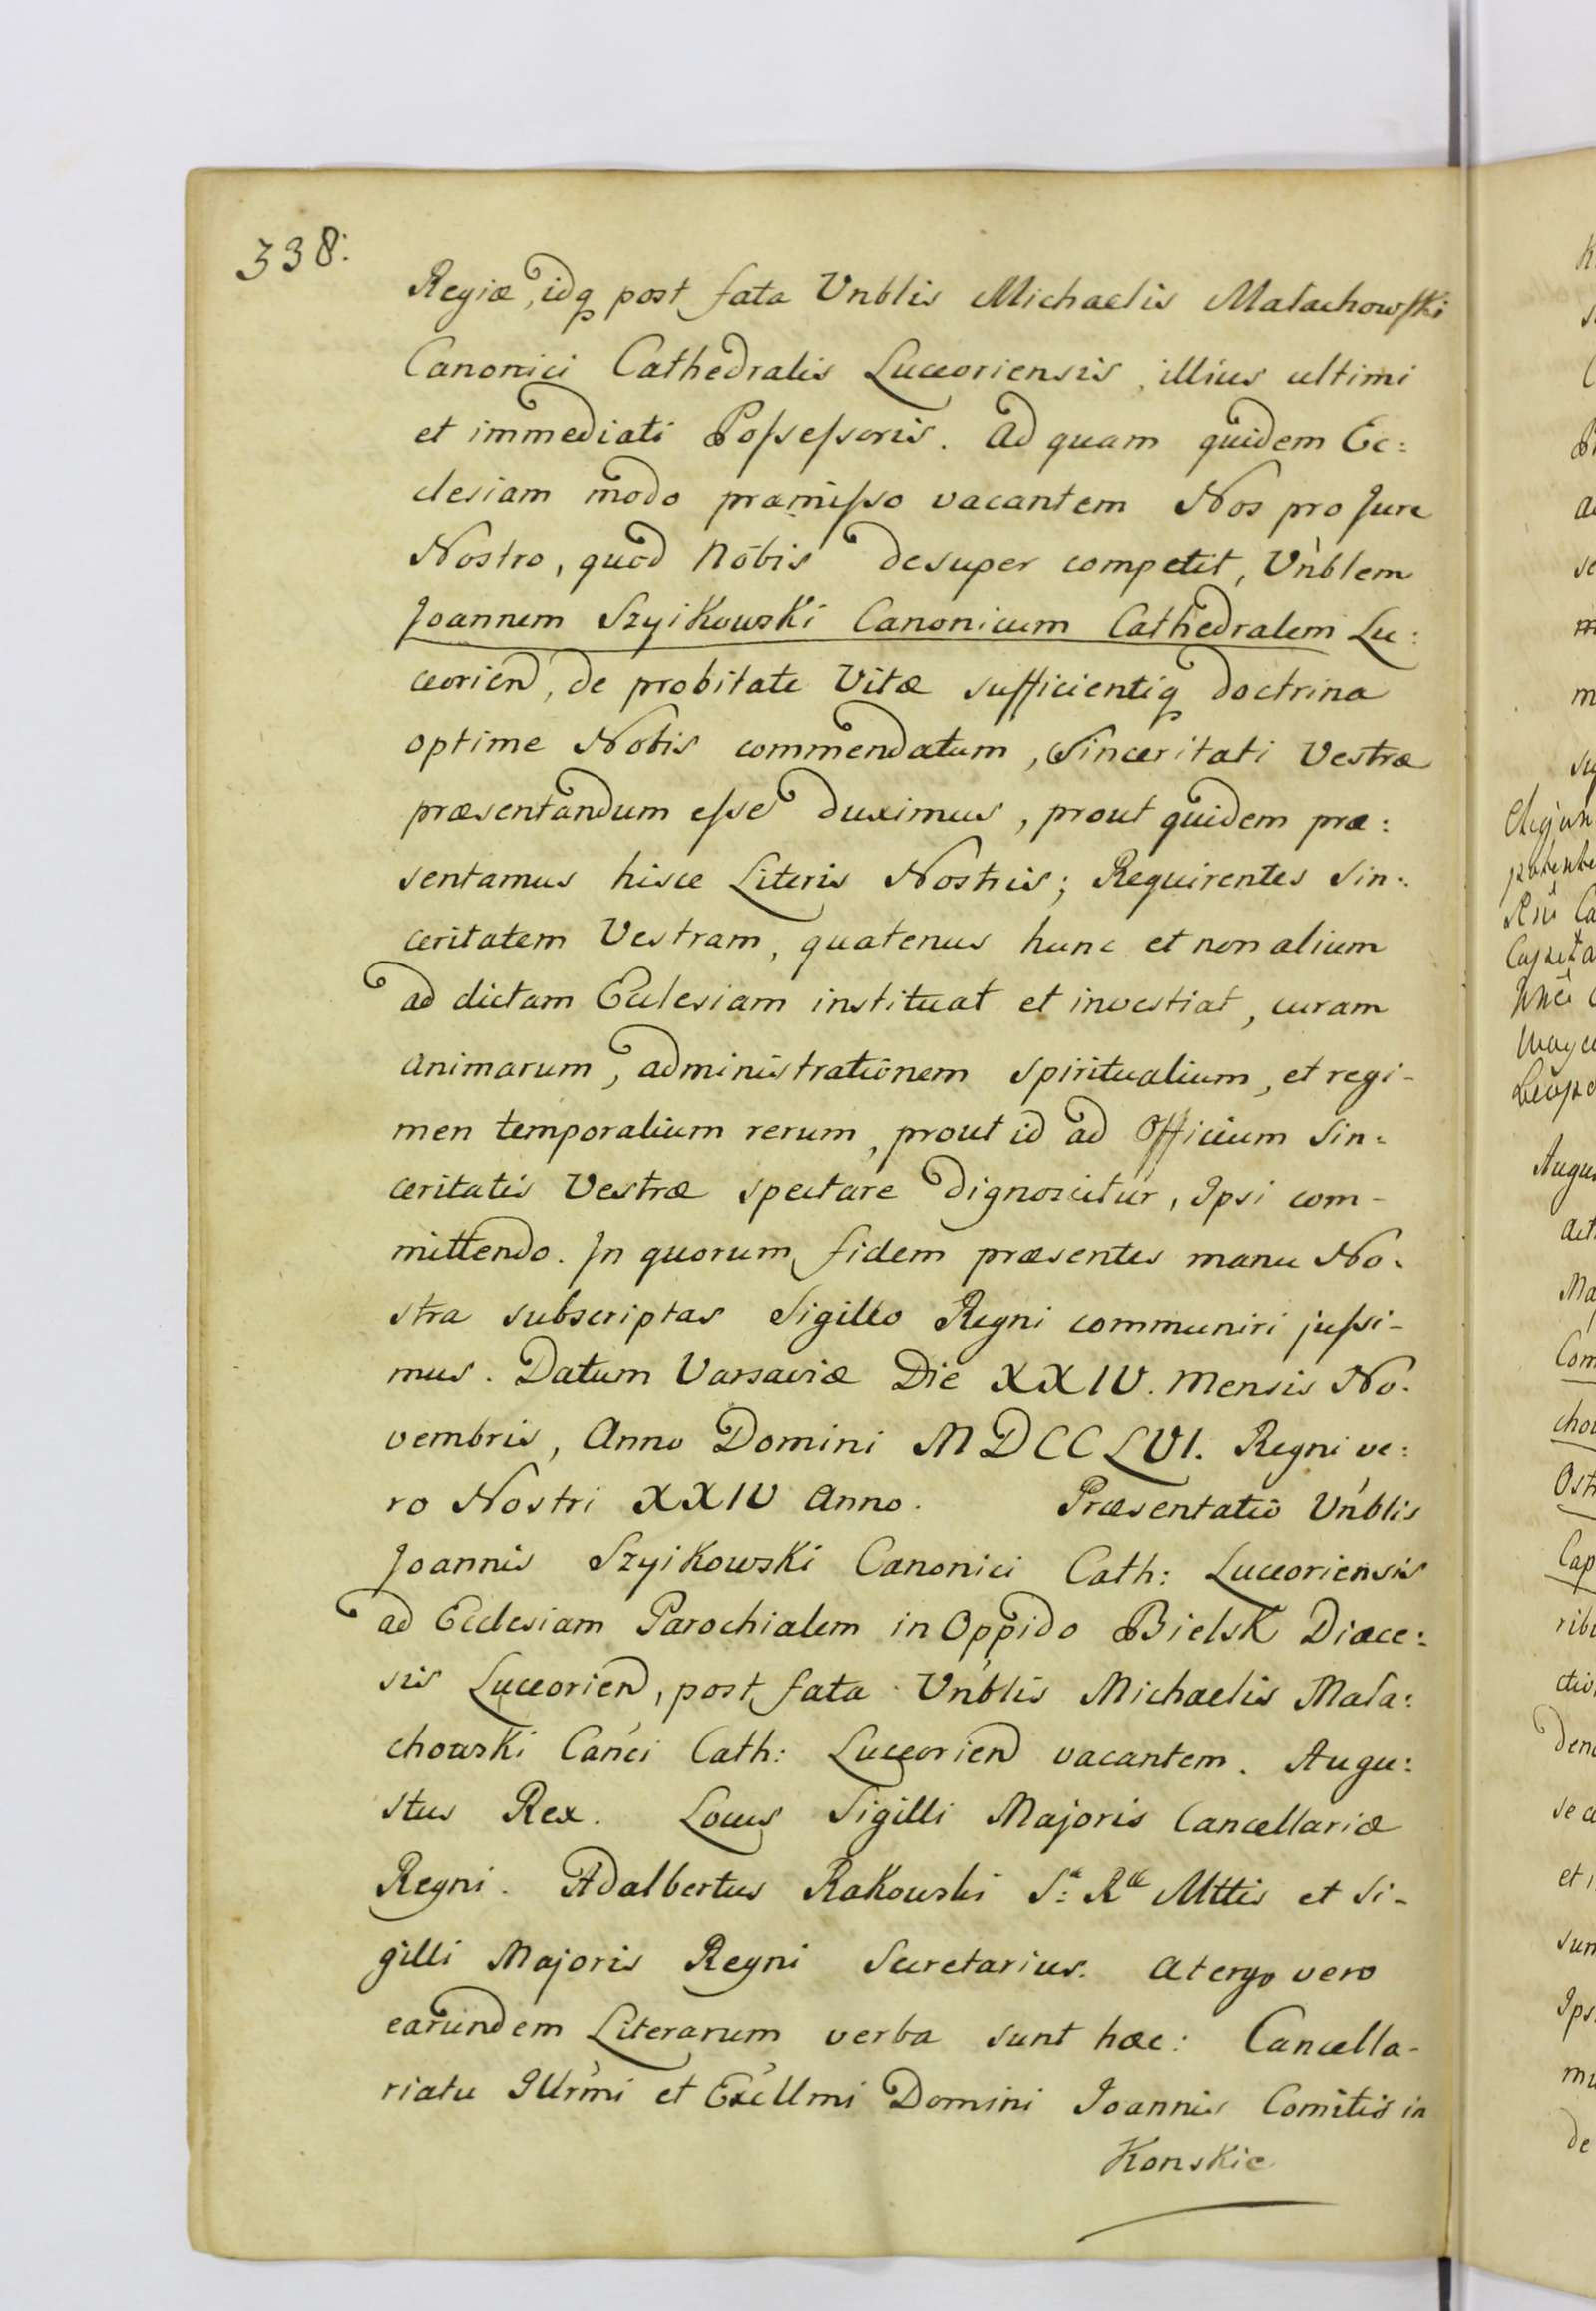 338:
Regiæ, idq post fata Vnblis Michaelis Małachowski
Canonici Cathedralis Luceoriensis, illius ultimi
et immediati Possessoris. Ad quam quidem Ec:
clesiam modo præmisso vacantem Nos pro Jure
Nostro, quod Nobis desuper competit, Vnblem
Joannem Szyikowski Canonicum Cathedralem Lu:
ceorien, de probitate Vitæ sufficientiq doctrina
optime Nobis commendatum, Sinceritati Vestræ
præsentandum esse duximus, prout quidem præ:
sentamus hisce Literis Nostris; Requirentes Sin:
ceritatem Vestram, quatenus hunc et non alium
ad dictam Ecclesiam instituat et investiat, curam
animarum, administrationem spiritualium, et regi-
men temporalium rerum, prout id ad Officium Sin:
ceritatis Vestræ spectare dignoscitur, Ipsi com-
mittendo. In quorum fidem præsentes manu No:
stra subscriptas Sigillo Regni communiri jussi-
mus. Datum Varsaviæ Die XXIV. Mensis No:
vembris, Anno Domini MDCCLVI. Regni ve:
ro Nostri XXIV Anno. Præsentatio Vnblis
Joannis Szyikowski Canonici Cath: Luceoriensis
ad Ecclesiam Parochialem in Oppido Bielsk Diæce:
sis Luceorien, post fata Vnblis Michaelis Mała:
chowski Canci Cath: Luceorien vacantem. Augu:
stus Rex. Locus Sigilli Majoris Cancellariæ
Regni. Adalbertus Rakowski S: R Mttis et Si-
gilli Majoris Regni Secretarius. A tergo vero
earundem Literarum verba sunt hæc: Cancella-
riatu Illrmi et Excllmi Domini Joannis Comitis in
Konskie